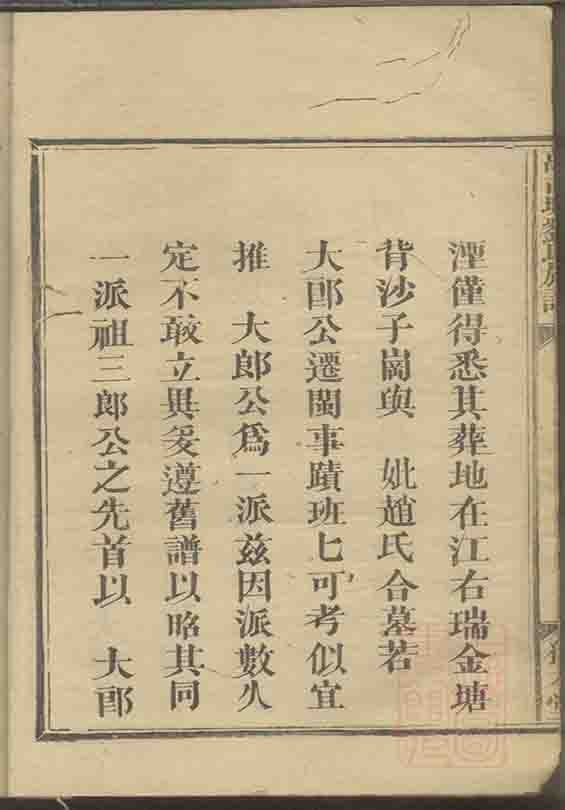 湮僅得悉其葬地在江右瑞金塘
背沙子崗與　妣趙氏合墓若
大郎公遷閩事蹟班七可考似宜
推　大郎公爲一派兹因派數久
定不敢立異爰遵舊譜以昭其同
一派祖三郎公之先首以　大郎